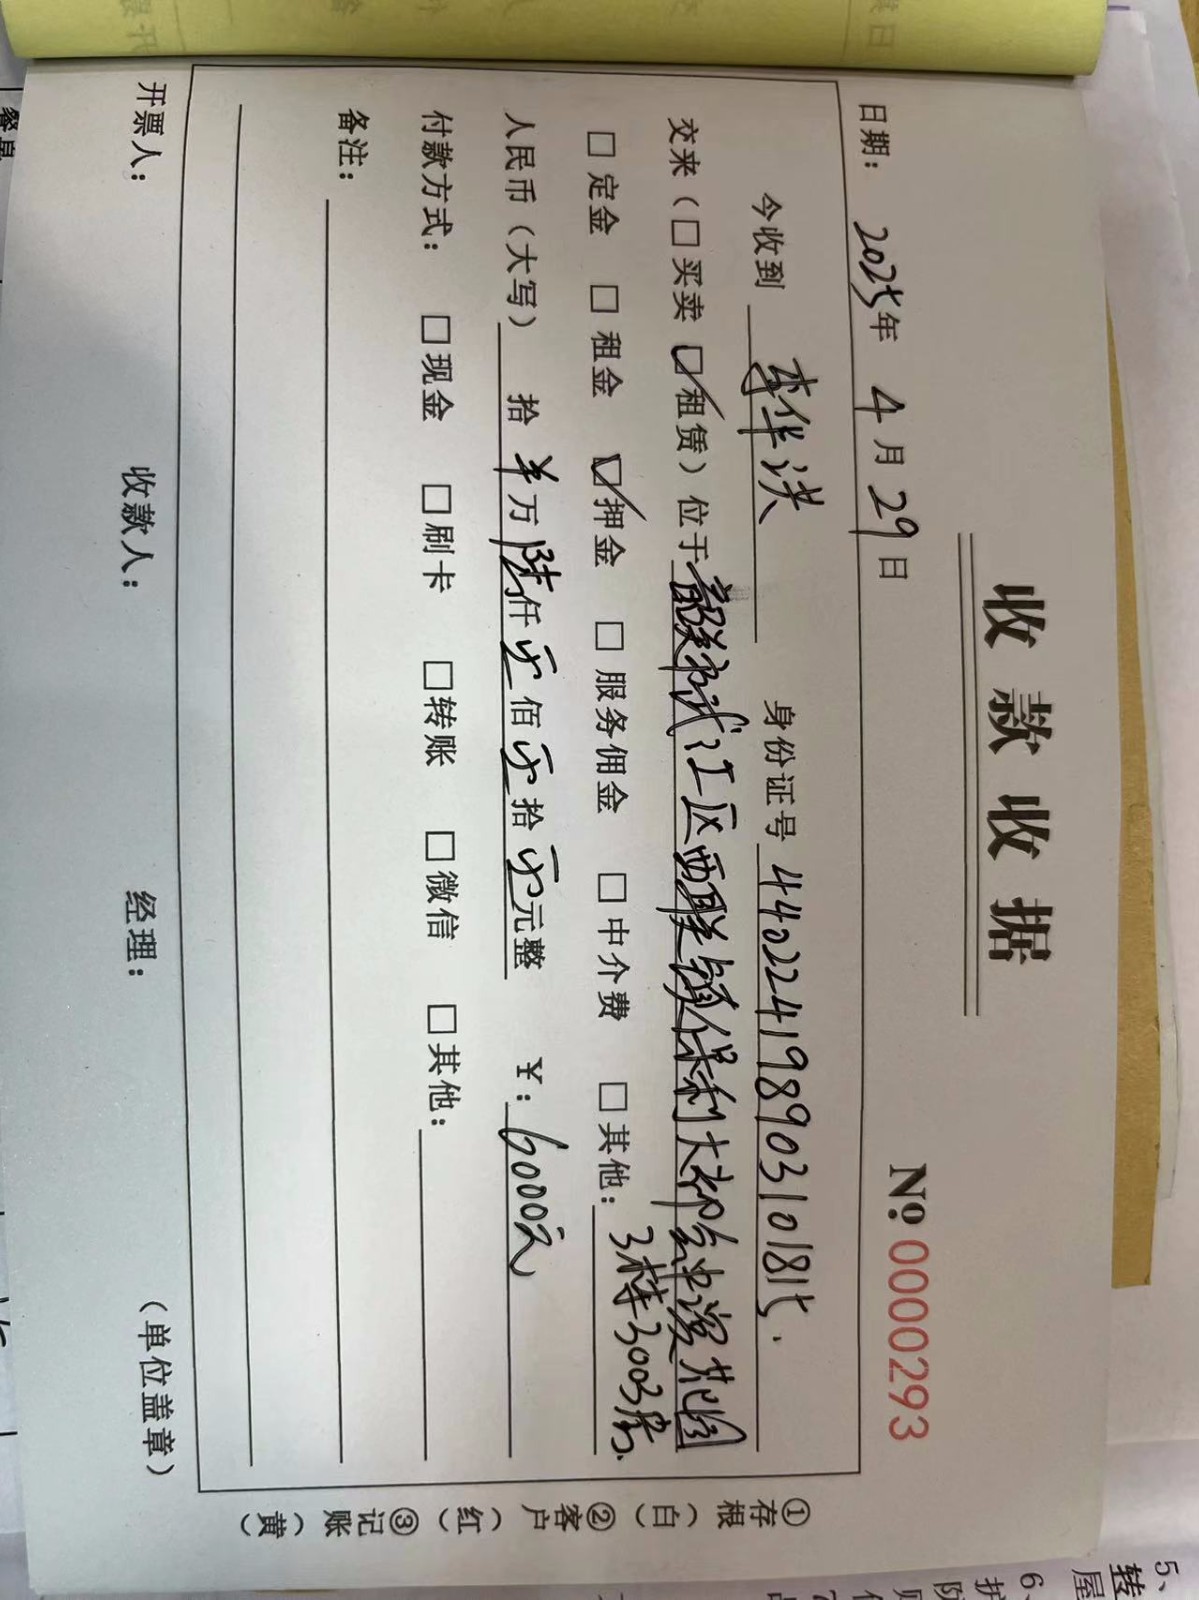 收款收据
№ 0000293
日期： 2025年 4月29日
今收到 李华洪 身份证号 440224198903101815.
交来（□买卖 ☑租赁）位于韶关市武江区西联镇保利大都会浪漫花园
3栋3003房.
□定金 □租金 ☑押金 □服务佣金 □中介费 □其他：
人民币（大写） 拾 ¥万陆仟零佰零拾零元整 ¥：6000元
付款方式： □现金 □刷卡 □转账 □微信 □其他：
备注：
开票人： 收款人： 经理： （单位盖章）
①存根（白） ②客户（红） ③记账（黄）
5、
转
屋
6、
护
防